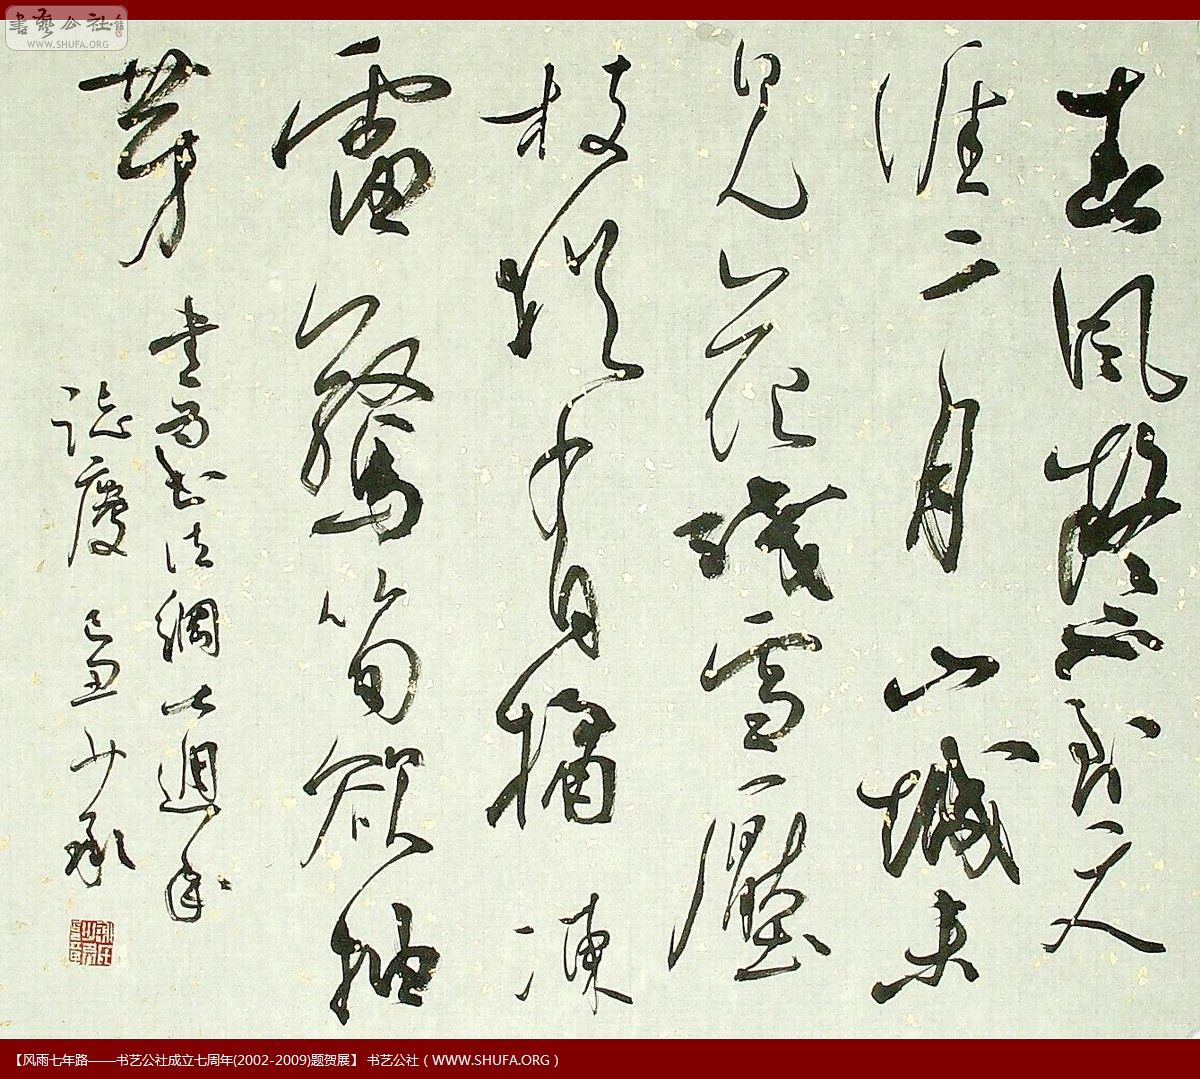 書藝公社
WWW.SHUFA.ORG
春風疑不到天
涯二月山城未
見花殘雪壓
枝猶有橘凍
雷驚筍欲抽
芽 書為书法網七週年
誌慶 己丑 少承
【风雨七年路——书艺公社成立七周年(2002-2009)题贺展】 书艺公社 ( WWW.SHUFA.ORG )